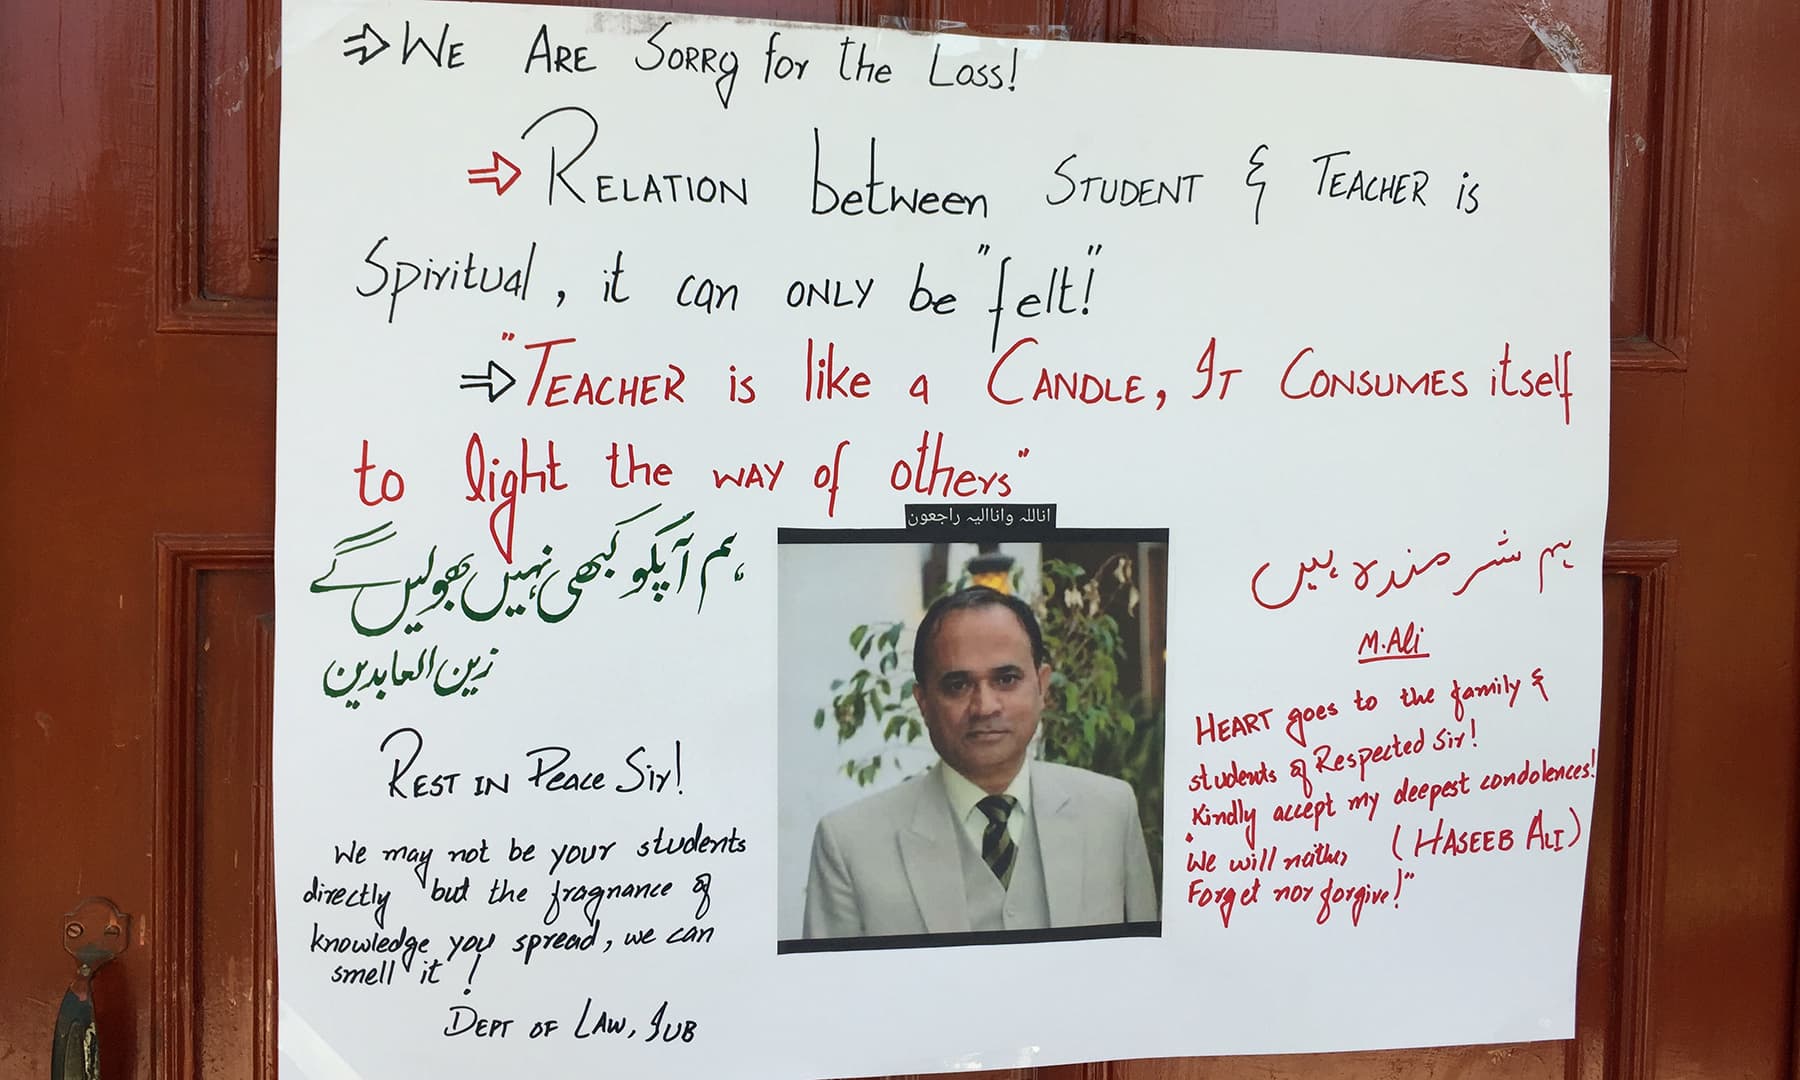 ⇒ WE ARE SORRY for the Loss!
⇒ RELATION between STUDENT & TEACHER is
Spiritual, it can ONLY be "felt!"
⇒ "TEACHER is like a CANDLE, IT CONSUMES itself
to light the WAY of others"
اناللہ واناالیہ راجعون
ہم آپکو کبھی نہیں بھولیں گے
زین العابدین
REST IN Peace Sir!
We may not be your students
directly but the fragnance of
knowledge you spread, we can
smell it!
DEPT OF LAW, IUB
ہم شرمندہ ہیں
M.Ali
HEART goes to the family &
students of Respected Sir!
Kindly accept my deepest condolences!
(HASEEB ALI)
"We will neither
Forget nor forgive!"